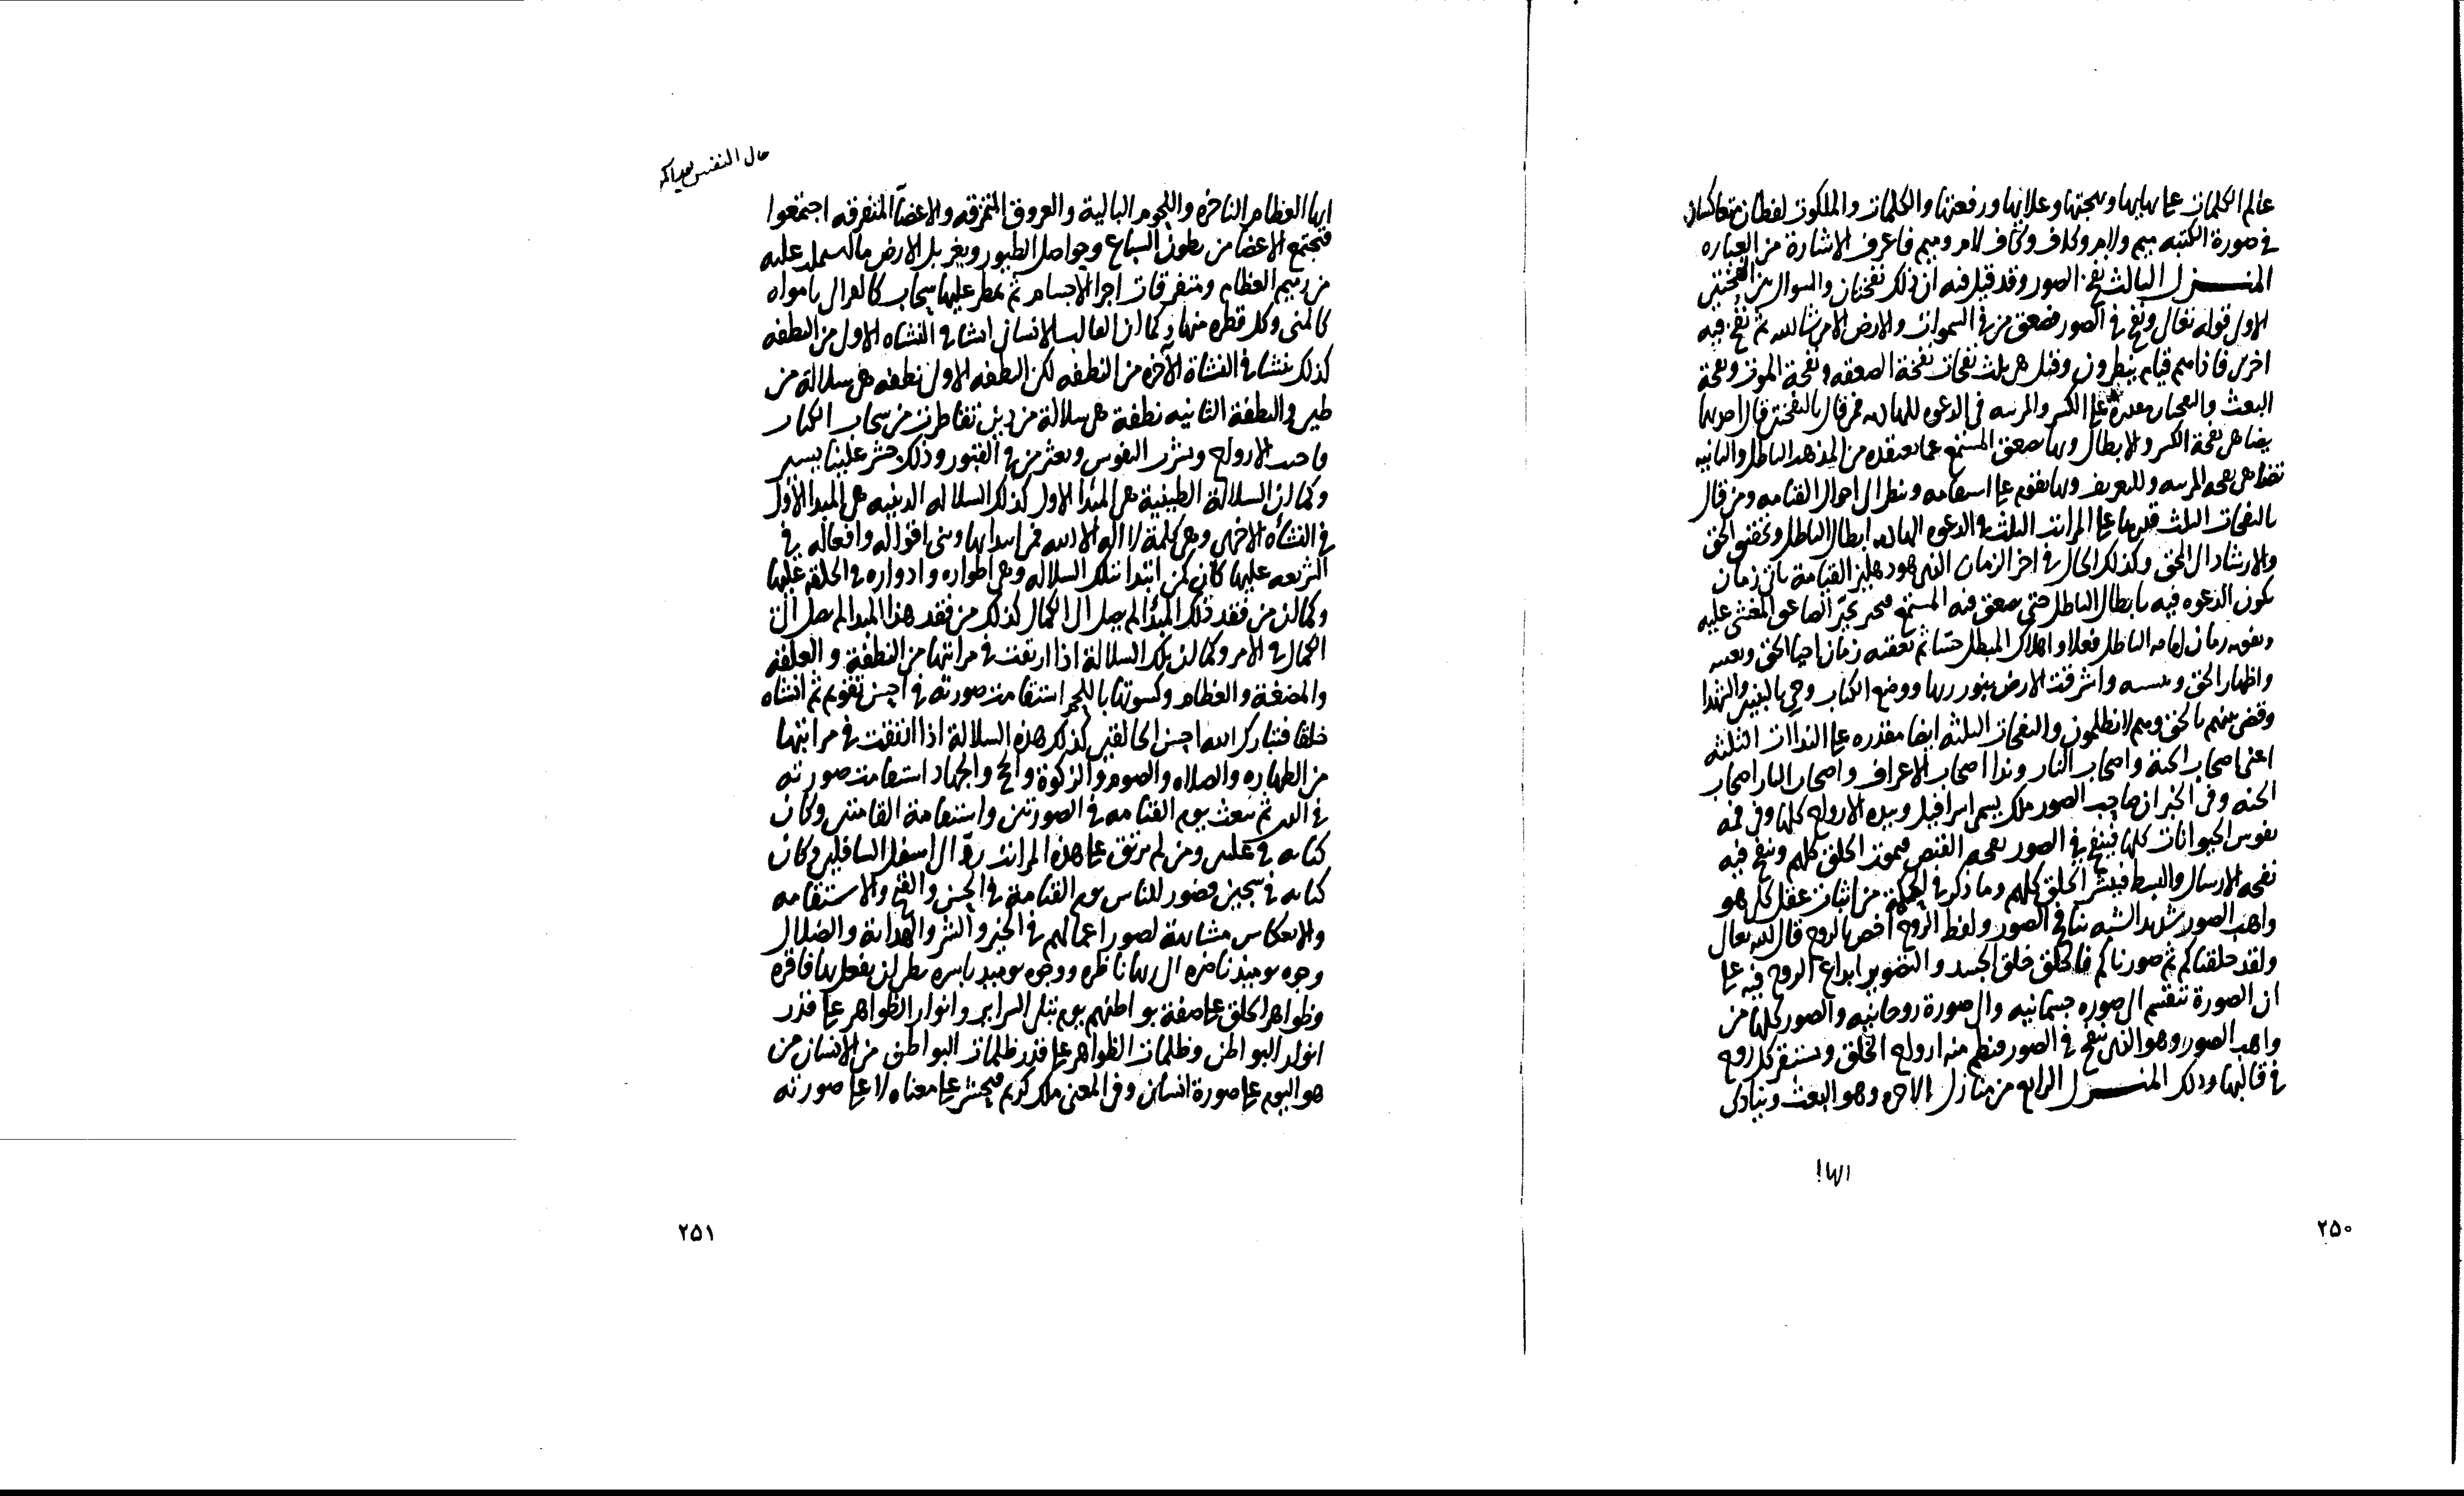 عالم الكلمات على بهايها وبهجتها وعلايها ورفعتها والكلمات والملكوت لفظان متعاكسان
في صورة الكتبه ميم ولام وكاف وكاف لام وميم فاعرف الاشارة من العباره
المنزل الثالث نفخ الصور وقد قيل فيه ان ذلك نفختان والسوال بين النفختين
الاول قوله تعالى ونفخ في الصور فصعق من في السموات والارض الا من شا الله ثم نفخ فيه
اخرى فاذا هم قيام ينظرون وقيل هي ثلث نفخات نفخة الصعقه ونفخة الموت ونفخة
البعث والنفختان مقدرة على الكسر و في الدعوه فمن قال بالنفختين قال احديهما
يضاهي نفخة الكسر والابطال وبها صعق المستمع عما يعتقده من المذهب الباطل والثانيه
نفخة ويها يقوم على استقامه وينظر الى احوال القيامه ومن قال
بالنفخات الثلث قدرها على المراتب الثلث في الدعوه ابطال الباطل وتحقيق الحق
والارشاد الى الحق وكذلك الحال في اخر الزمان الذي هو دهليز القيامة ياتي زمان
يكون الدعوه فيه بابطال الباطل حتى يصعق فيه المستمع فيتحير تحير الصاعق المغشي عليه
زمان اماته الباطل فعلا واهلاك المبطل حسا ثم يعقبه زمان احيا الحق
واظهار الحق واشرقت الارض بنور ربها ووضع الكتاب وجي بالنبيين والشهدا
وقضي بينهم بالحق وهم لا يظلمون والنفخات الثلثه ايضا مقدره على الندات الثلثه
اعني اصحاب الجنة واصحاب النار وندا اصحاب الاعراف واصحاب النار اصحاب
الجنه وفي الخبر ان صاحب الصور ملك يسمى اسرافيل وبيده الارواح كلها وفي فمه
نفوس الحيوانات كلها فينفخ في الصور نفخه القبض فيموت الخلق كلهم وينفخ فيه
نفخه الارسال والبسط فينشر الخلق كلهم وما ذكر في الحكمة من اثبات عقل كل هو
واهب الصور شديد الشبه بنافخ الصور ولفظ الروح اخص بالروح قال الله تعالى
ولقد خلقناكم ثم صورناكم فالخلق خلق الجسد والتصوير ابداع الروح فيه على
ان الصورة تنقسم الى صوره جسمانيه والى صورة روحانيه والصور كلها من
واهب الصور وهو الذي ينفخ في الصور منه ارواح الخلق ويستقر كل روح
في قالبها وذلك المنزل الرابع من منازل الاخره وهو البعث وينادى
ايها
٢٥٠
حال النفس
ايها العظام الناخره واللحوم البالية والعروق المتمزقه والاعضا المتفرقه اجتمعوا
فتجتمع الاعضا من بطون السباع وحواصل الطيور ويغربل الارض ما عليه
من رميم العظام ومتفرقات اجزا الاجسام ثم يمطر عليها سحاب بامواه
كالمني وكل قطره منها وكما ان القالب الانساني انشا في النشاه الاولى من النطفه
كذلك ينشا في النشاة الآخره من النطفه لكن النطفه الاولى نطفه هي سلالة من
طين والنطفة الثانيه نطفة هي سلالة من دين تقاطرت من سحاب الكتاب
الارواح ونشرت النفوس وبعثر من في القبور وذلك حشر علينا يسير
وكما ان السلالة الطينية هي المبدا الاول كذلك السلاله الدينيه هي المبدا الاول
في النشأة الاخرى وهي كلمة لا اله الا الله فمن ابتدا بها وبنى اقواله وافعاله في
الشريعه عليها كان كمن ابتدا بتلك السلاله وبنى اطواره وادواره في الخلقه عليها
وكما ان من فقد ذلك المبدا لم يصل الى الكمال كذلك من فقد هذا المبدا لم يصل الى
الكمال في الامر وكما ان تلك السلالة اذا ارتقت في مراتبها من النطفة والعلقه
والمضغة والعظام وكسوتها باللحم استقامت صورته في احسن تقويم ثم انشاه
خلقا فتبارك الله احسن الخالقين كذلك هذه السلالة اذا ارتقت في مراتبها
من الطهاره والصلاه والصوم والزكوة والحج والجهاد استقامت صورته
في الدين ثم يبعث يوم القيامه في الصورتين واستقامة القامتين وكان
كتابه في عليين ومن لم يرتق على هذه المراتب ردّ الى اسفل السافلين وكان
كتابه في سجين فصور الناس يوم القيامة في الحسن والقبح والاستقامه
والانعكاس مشابهة لصور اعمالهم في الخير والشر والهداية والضلال
وجوه يوميذ ناضره الى ربها ناظره ووجوه يوميذ باسره تظن ان يفعل بها فاقره
وظواهر الخلق على صفة بواطنهم يوم تبلى السراير وانوار الظواهر على قدر
انوار البواطن وظلمات الظواهر على قدر ظلمات البواطن من الانسان من
هو اليوم على صورة انسان وفي المعنى ملك كريم فيحشر على معناه لا على صورته
٢٥١